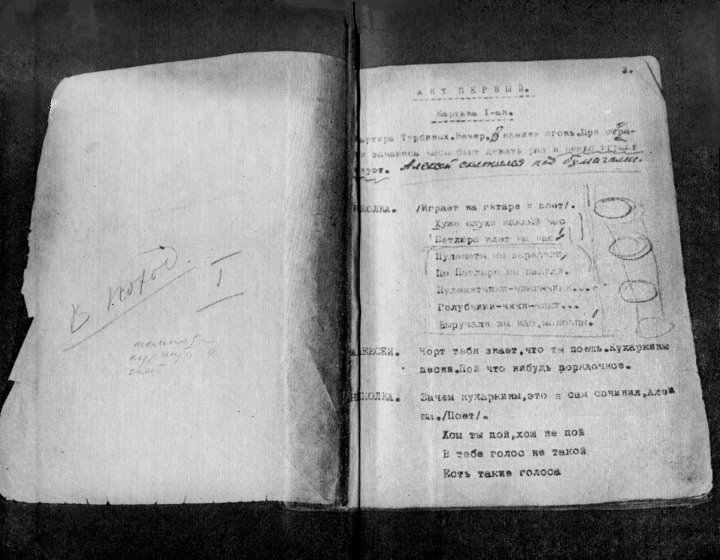 В
I
2.
АКТ ПЕРВЫЙ.
Картина I-ая.
Турбиных. Вечер. В камине огонь. При
часы бьют девять раз и нежно играют
Алексей склонился над бумагами.
/Играет на гитаре и поет/.
Хуже слухи каждый час
Петлюра идет на нас!
Пулеметы мы зарядили,
По Петлюре мы палили.
Пулеметчики-чики-чики...
Голубчики-чики-чики...
Выручали вы нас, молодцы!
АЛЕКСЕЙ. Чорт тебя знает, что ты поешь. Кухаркины
песни. Пой что нибудь порядочное.
НИКОЛКА. Зачем кухаркины, это я сам сочинил, Алеш
ша. /Поет/.
Хош ты пой, хош не пой
В тебе голос не такой
Есть такие голоса